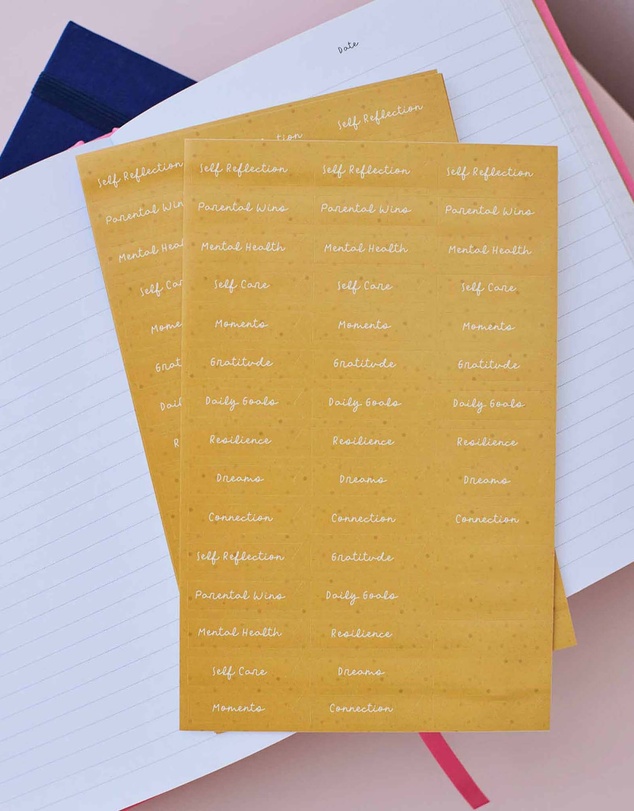 Date
Self Reflection
Self Reflection Self Reflection Self Reflection Self Reflection
Parental Wins Parental Wins Parental Wins
Mental Health Mental Health Mental Health
Self Care Self Care Self Care
Moments Moments Moments
Gratitude Gratitude Gratitude
Daily Goals Daily Goals Daily Goals
Resilience Resilience Resilience
Dreams Dreams Dreams
Connection Connection Connection
Self Reflection Gratitude
Parental Wins Daily Goals
Mental Health Resilience
Self Care Dreams
Moments Connection